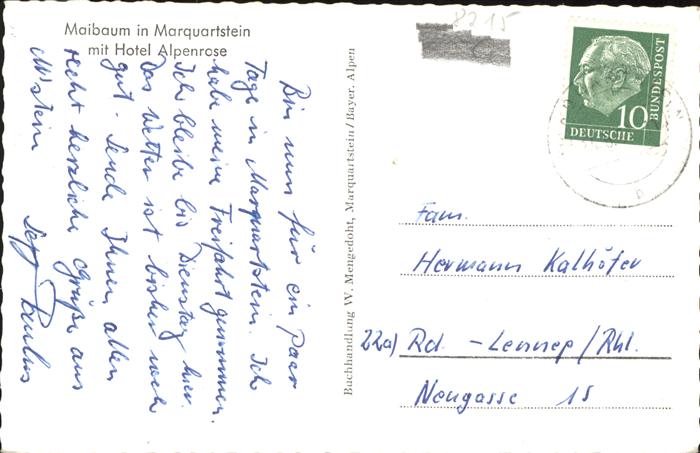 Maibaum in Marquartstein
mit Hotel Alpenrose
8215
Bin nun für ein paar
Tage in Marquartstein. Ich
habe meine Freifahrt genommen.
Ich bleibe bis Dienstag hier.
Das Wetter ist bisher noch
gut. Sende Ihnen allen
recht herzliche Grüße aus
M'stein
Sepp Paulus
Buchhandlung W. Mengedoht, Marquartstein/Bayer. Alpen
10
DEUTSCHE
BUNDESPOST
Fam.
Hermann Kalhöfer
22a) Rd. - Lennep / Rhl.
Neugasse 15